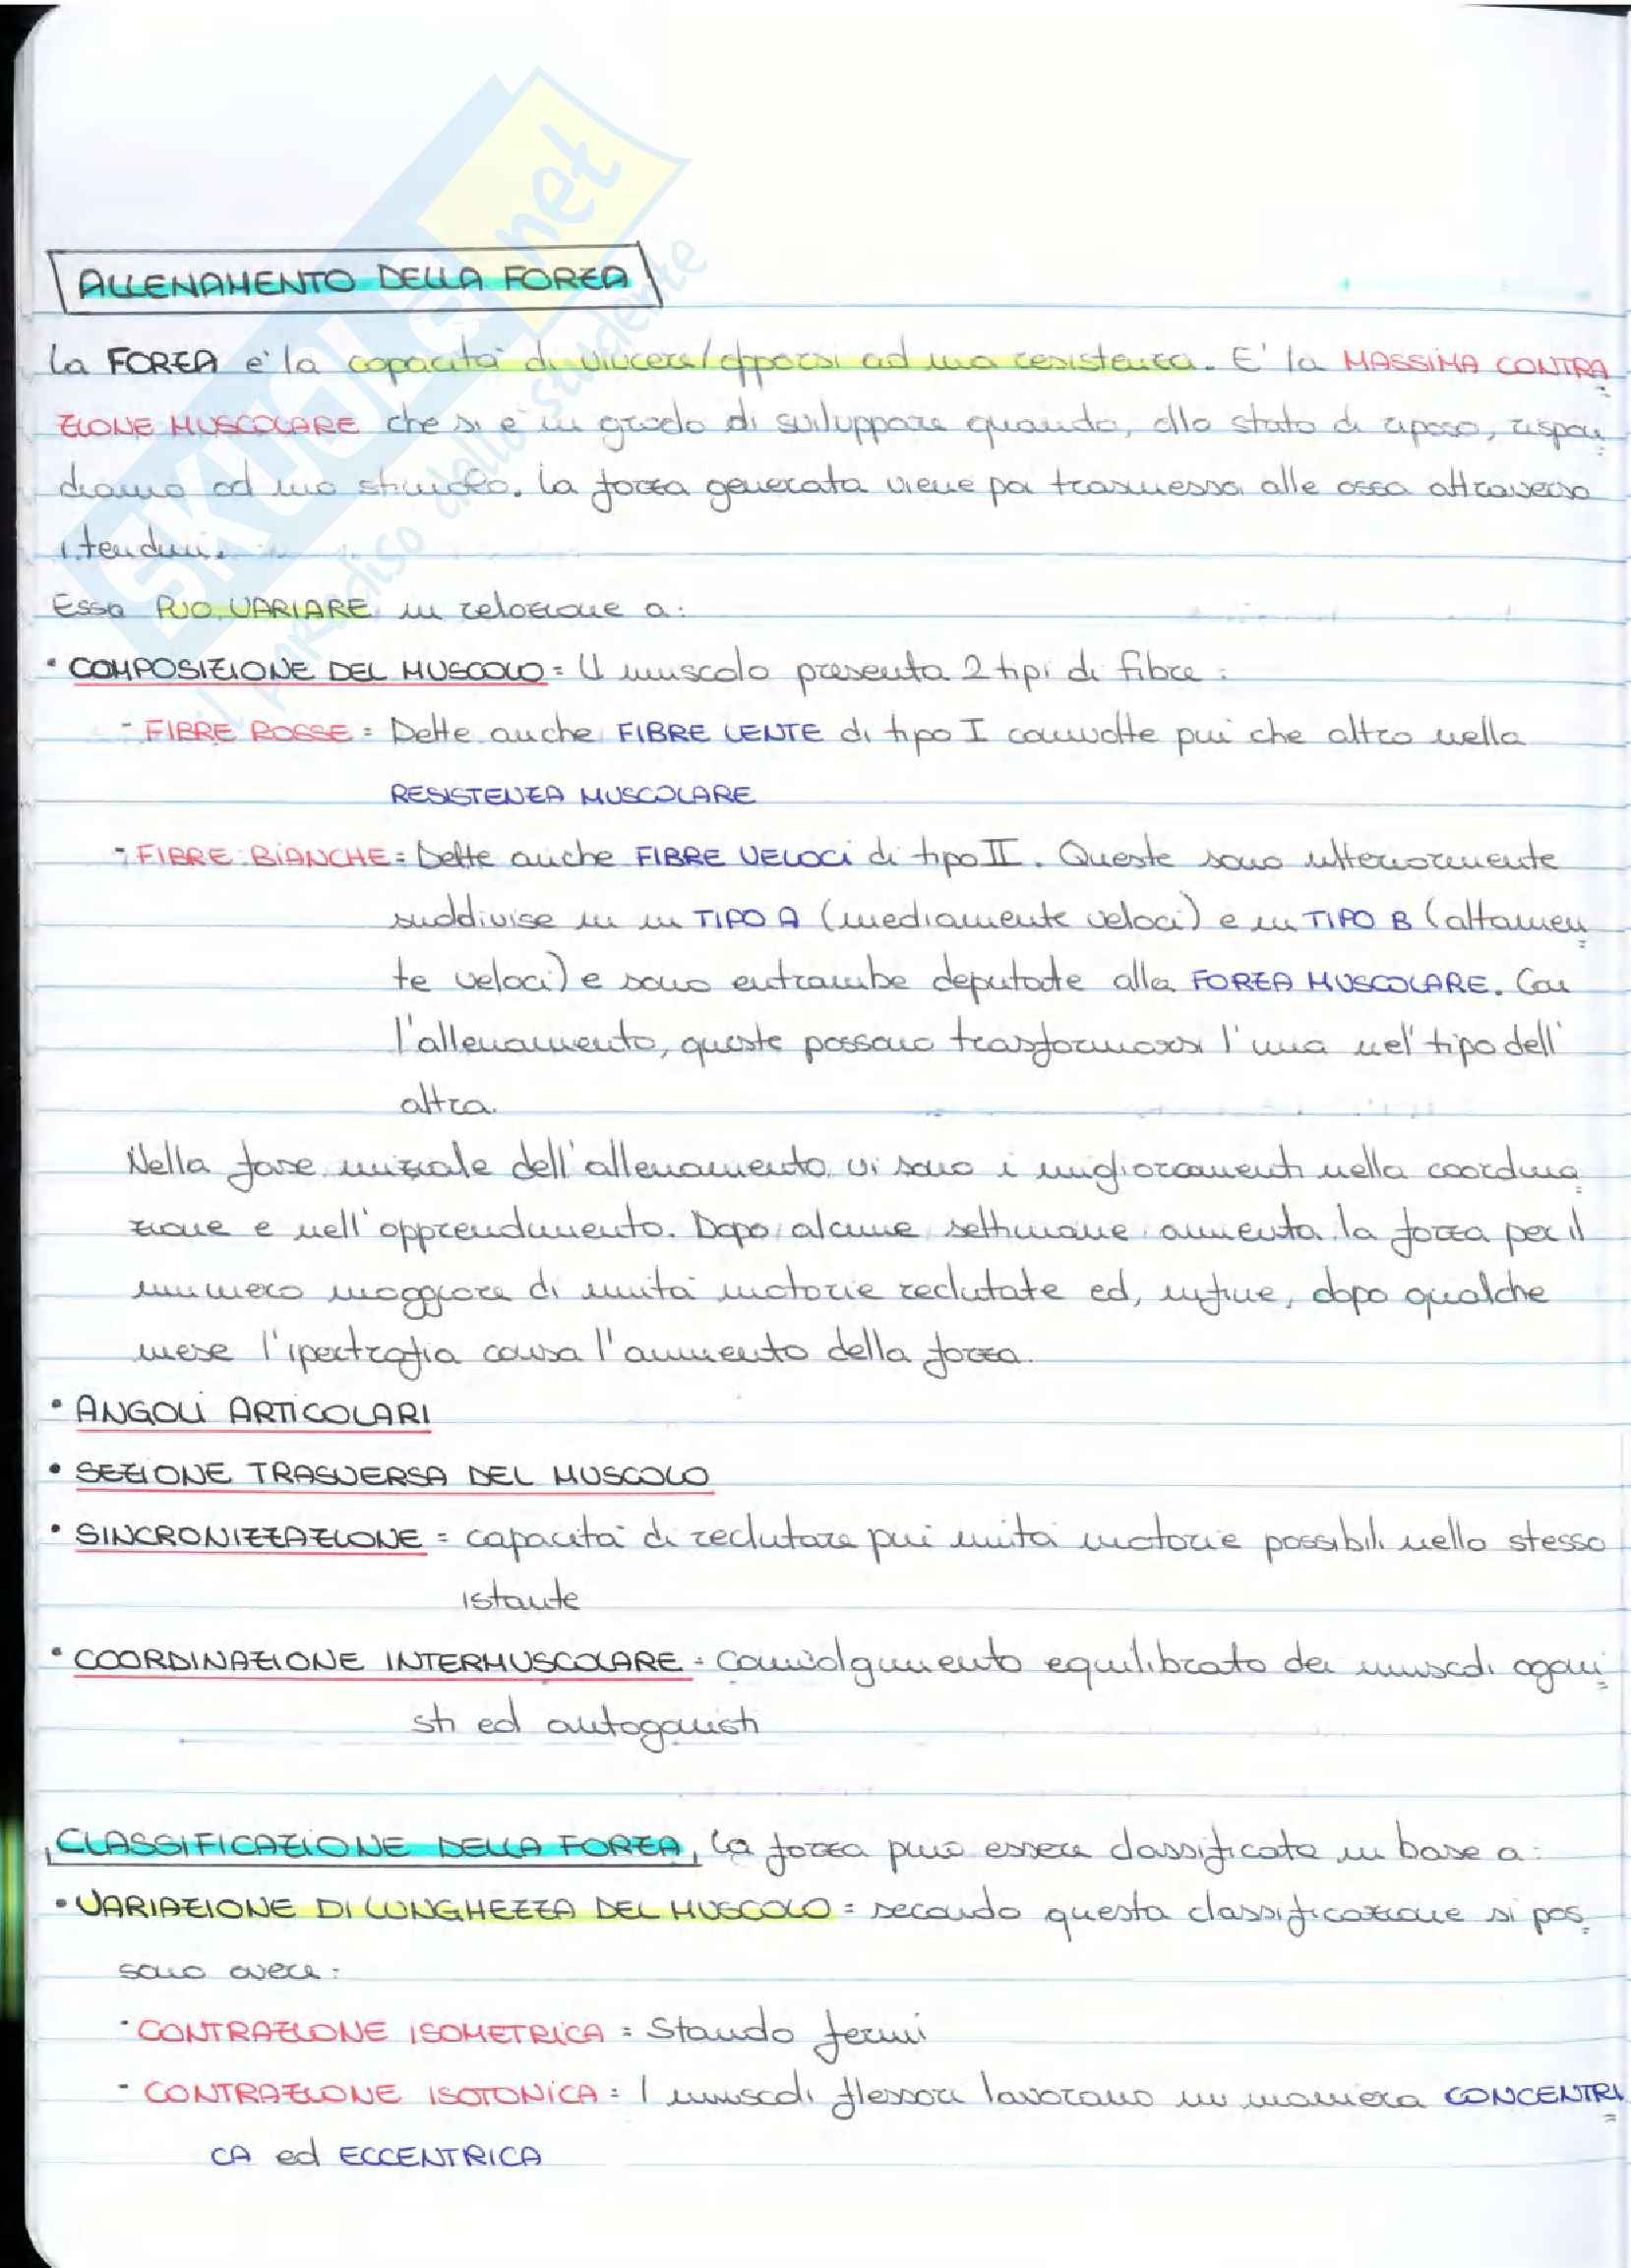 SKUOLA.net
il paradiso dello studente
ALLENAMENTO DELLA FORZA
La FORZA e' la capacità di vincere/opporsi ad una resistenza. E' la MASSIMA CONTRA
ZIONE MUSCOLARE che si è in grado di sviluppare quando, allo stato di riposo, rispon
diamo ad uno stimolo. La forza generata viene poi trasmessa alle ossa attraverso
i tendini.
Essa PUO VARIARE in relazione a:
• COMPOSIZIONE DEL MUSCOLO = Il muscolo presenta 2 tipi di fibre:
- FIBRE ROSSE = Dette anche FIBRE LENTE di tipo I coinvolte più che altro nella
RESISTENZA MUSCOLARE
- FIBRE BIANCHE = Dette anche FIBRE VELOCI di tipo II. Queste sono ulteriormente
suddivise in in TIPO A (mediamente veloci) e in TIPO B (altamen
te veloci) e sono entrambe deputate alla FORZA MUSCOLARE. Con
l'allenamento, queste possono trasformarsi l'una nel tipo dell'
altra.
Nella fase iniziale dell'allenamento vi sono i miglioramenti nella coordina
zione e nell'apprendimento. Dopo alcune settimane aumenta la forza per il
numero maggiore di unità motorie reclutate ed, infine, dopo qualche
mese l'ipertrofia causa l'aumento della forza.
• ANGOLI ARTICOLARI
• SEZIONE TRASVERSA DEL MUSCOLO
• SINCRONIZZAZIONE = capacità di reclutare più unità motorie possibili nello stesso
istante
• COORDINAZIONE INTERMUSCOLARE = coinvolgimento equilibrato dei muscoli agoni
sti ed antagonisti
CLASSIFICAZIONE DELLA FORZA, la forza può essere classificata in base a:
• VARIAZIONE DI LUNGHEZZA DEL MUSCOLO = secondo questa classificazione si pos
sono avere:
- CONTRAZIONE ISOMETRICA = Stando fermi
- CONTRAZIONE ISOTONICA = I muscoli flessori lavorano in maniera CONCENTRI
CA ed ECCENTRICA